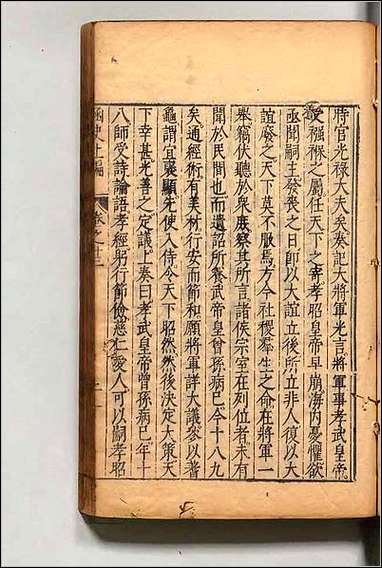 將官光祿大夫矣奏記大將軍光言將軍事孝武皇帝
受襁褓之屬任天下之寄孝昭皇帝早崩海內憂懼欲
亟聞嗣主發喪之日即以大誼立後所立非人復以大
誼廢之天下莫不服焉方今社稷羣生之命在將軍一
舉竊伏聽於衆庶察其所言諸侯宗室在列位者未有
聞於民間也而遺詔所養武帝曾孫病已今十八九
矣通經術有美材行安而節和願將軍詳大議參以蓍
龜謂宜襃顯先使入侍令天下昭然然後決定大策天
下幸甚光善之定議上奏曰孝武皇帝曾孫病已年十
八師受詩論語孝經躬行節儉慈仁愛人可以嗣孝昭
函史上編
卷之十二